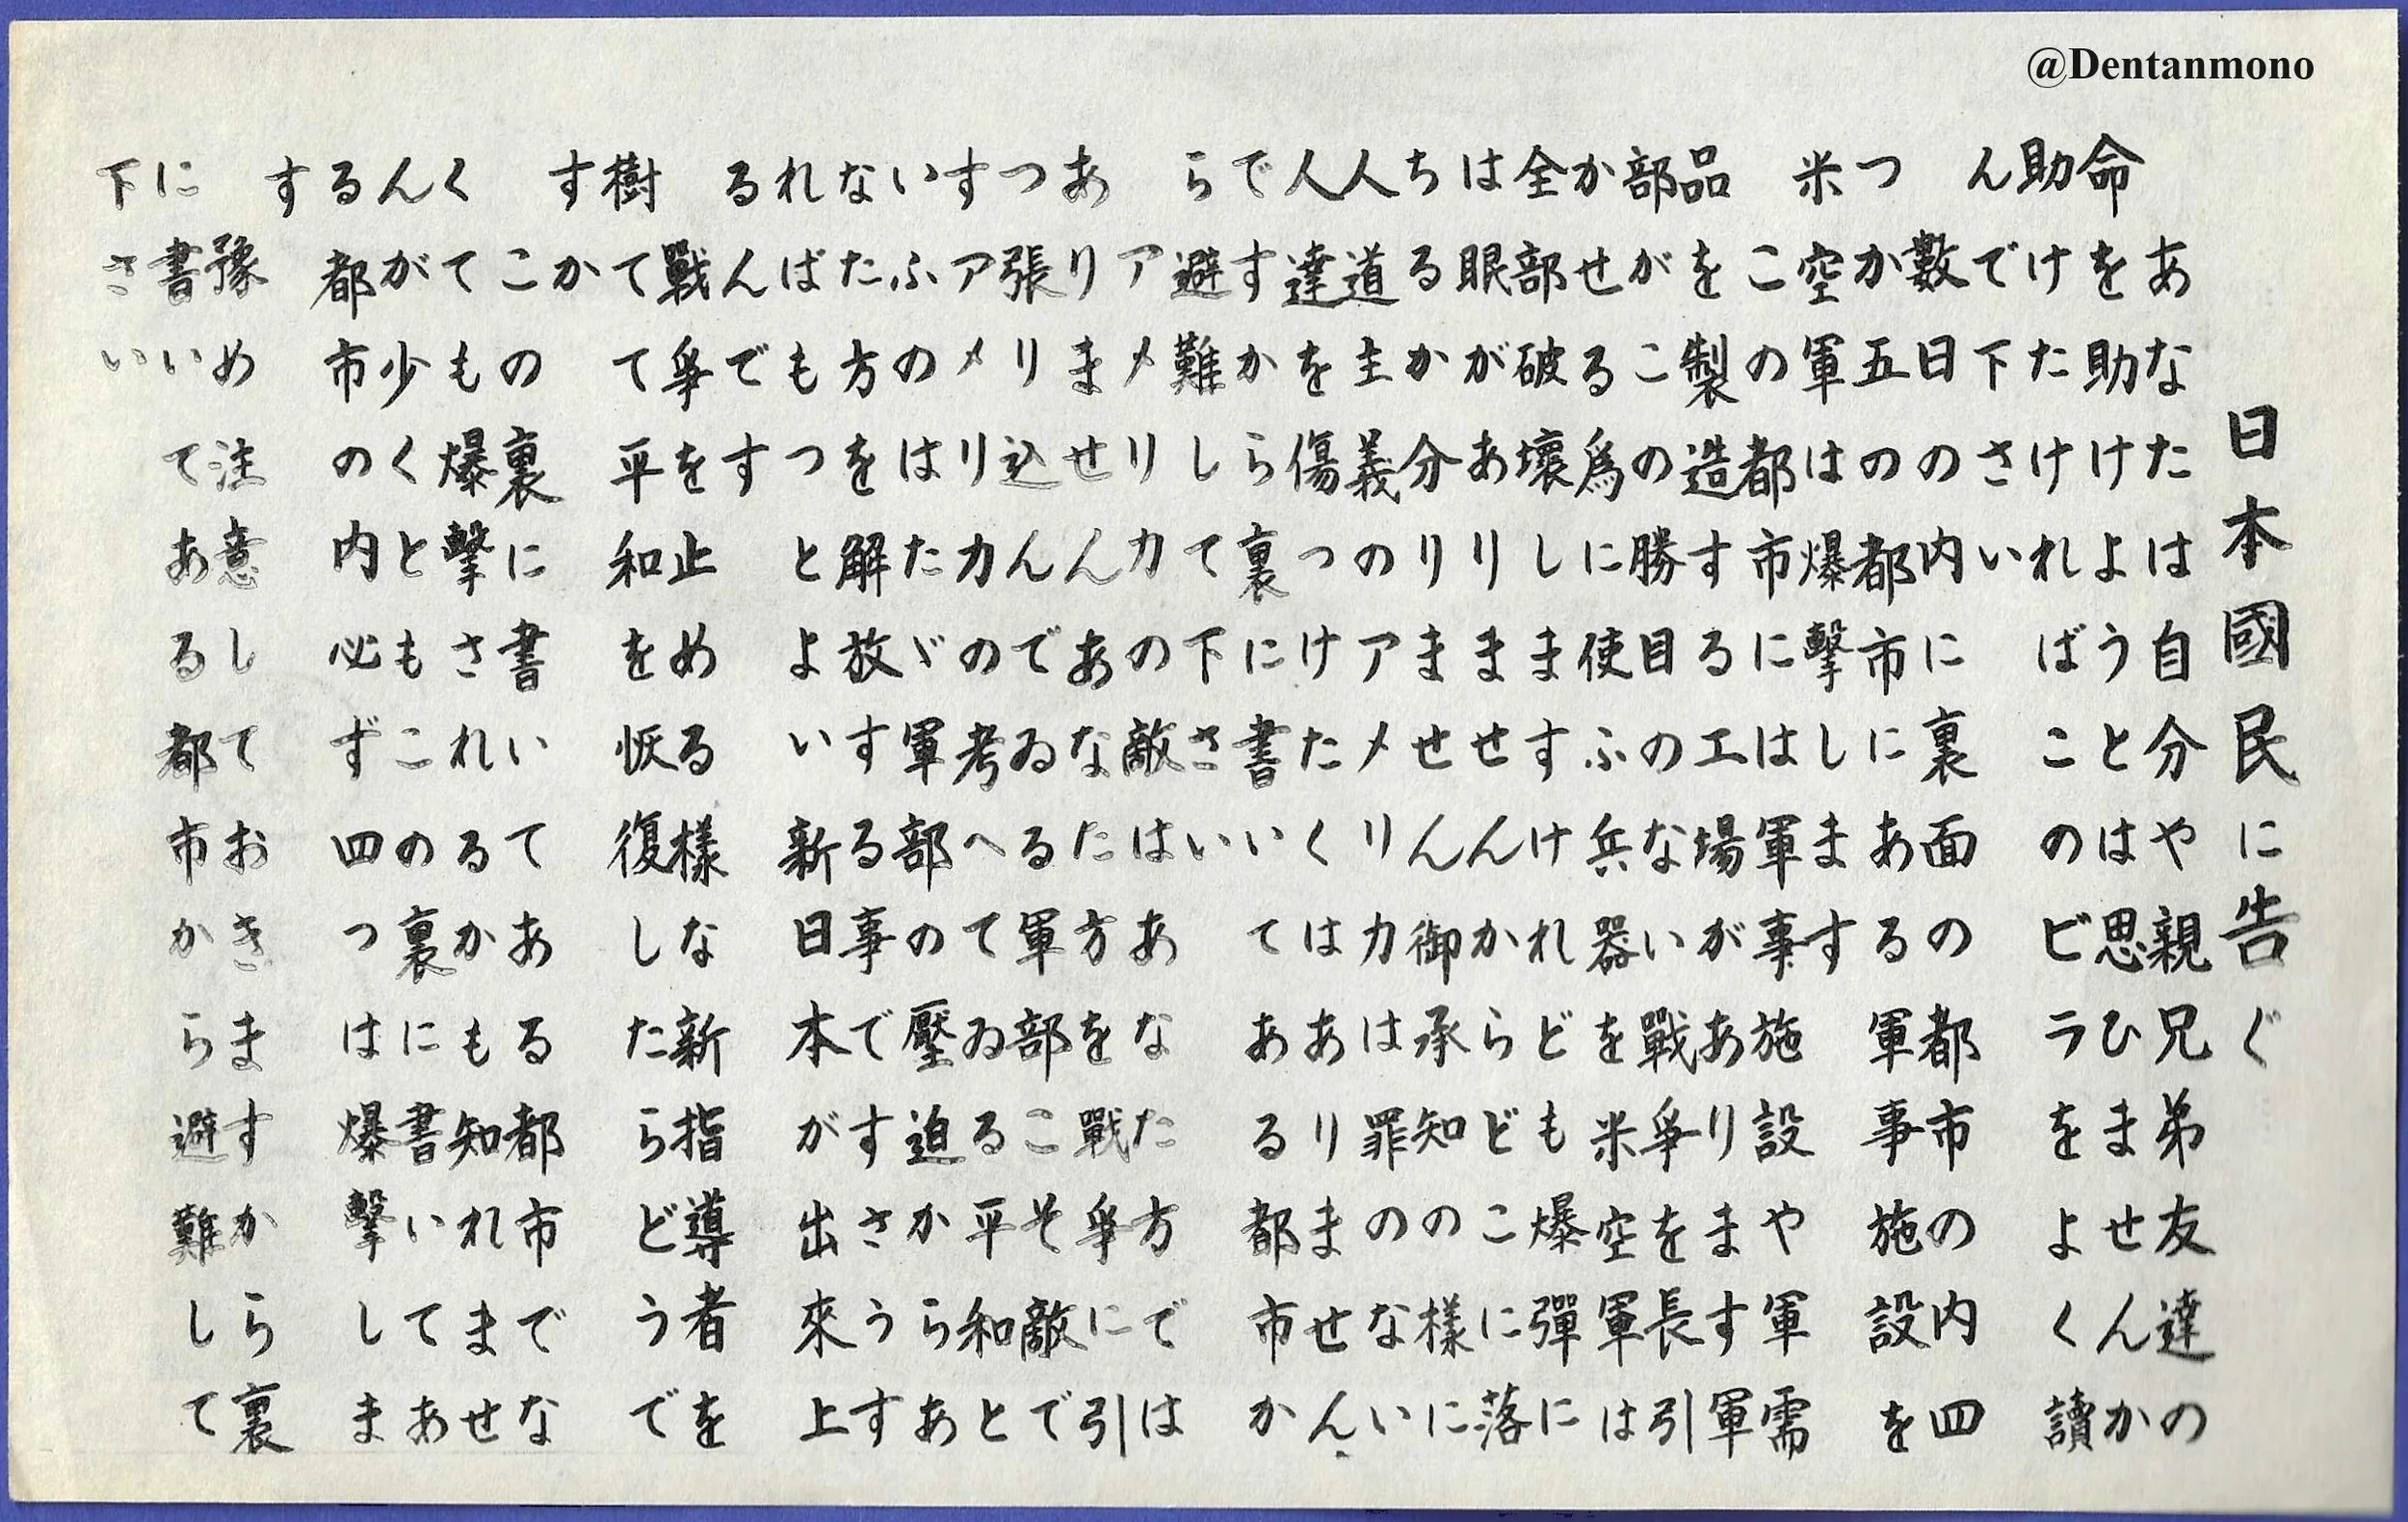 日本國民に告ぐ
あなたは自分や親兄弟友達の
命を助けようとは思ひませんか
助けたければこのビラをよく讀
んで下さい
數日の内に裏面の都市の四
つか五の都市にある軍事施設を
米空軍は爆撃します
この都市には軍事施設や軍需
品を製造する工場があります軍
部がこの勝目のない戰爭を長引
かせる爲に使ふ兵器を米空軍は
全部破壞しますけれども爆彈に
は眼がありませんからどこに落
ちるか分りません御承知の様に
人道主義のアメリカは罪のない
人達を傷つけたくはありません
ですから裏に書いてある都市か
ら避難して下さい
アメリカの敵はあなた方では
ありませんあなた方を戰爭に引
つ張り込んでゐる軍部こそ敵で
すアメリカの考へてゐる平和と
いふのはたゞ軍部の壓迫からあ
なた方を解放する事ですさうす
ればもつとよい新日本が出來上
るんです
戰爭を止める樣な新指導者を
樹てて平和を恢復したらどうで
すか
この裏に書いてある都市でな
くても爆撃されるかも知れませ
んが少くともこの裏に書いてあ
る都市の内必ず四つは爆撃しま
す
豫め注意しておきますから裏
に書いてある都市から避難して
下さい
@Dentanmono